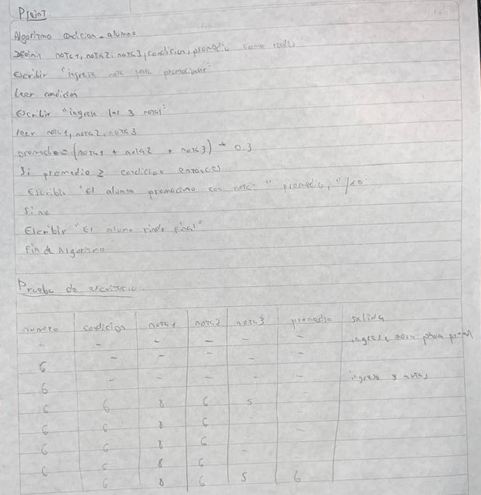 Algoritmo condicion_alumno
Definir nota1, nota2, nota3, condicion, promedio como real
Escribir "ingrese nota para promocionar"
Leer condicion
Escribir "ingrese las 3 notas"
leer nota1, nota2, nota3
promedio = (nota1 + nota2 + nota3) * 0.3
Si promedio ≥ condicion entonces
Escribir "El alumno promociono con nota: " promedio, "/10
Sino
Escribir "El alumno rinde final"
Fin de Algoritmo
Prueba de escritorio
numero condicion nota1 nota2 nota3 promedio salida
- - - - - - ingrese nota para
6 - - - - -
6 - - - - ingrese 3 notas
6 6 8 6 5
6 6 8 6
6 6 8 6 -
6 6 8 6
6 8 6 5 6